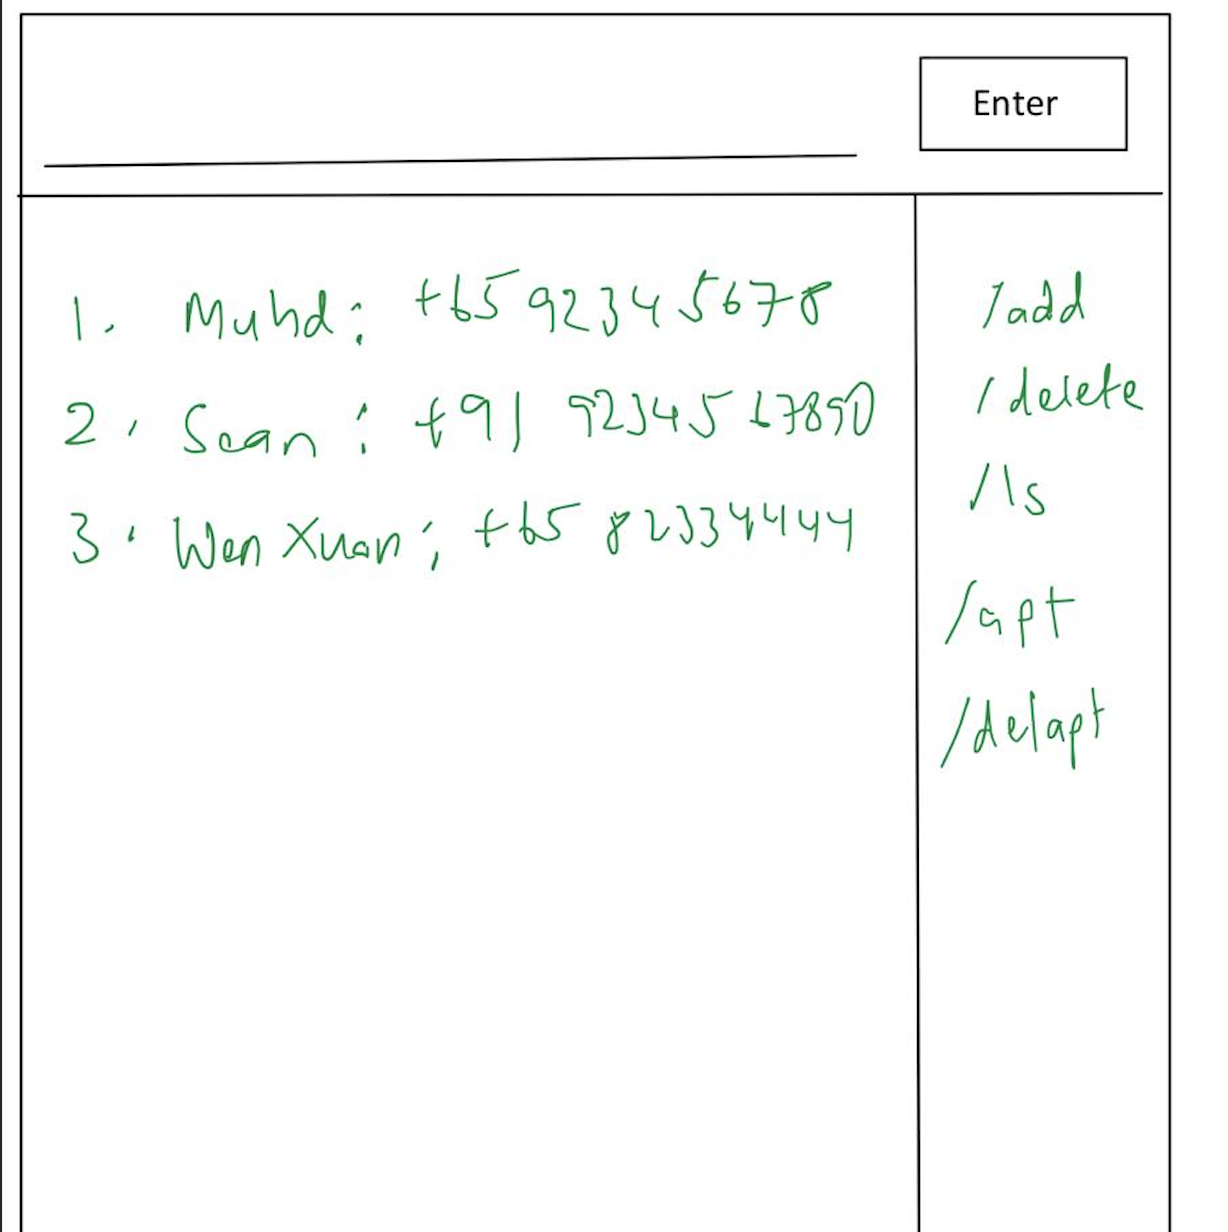 Enter
1. Muhd: +65 92345678
2. Sean: +91 9234567890
3. Wen Xuan: +65 82334444
/add
/delete
/ls
/apt
/delapt